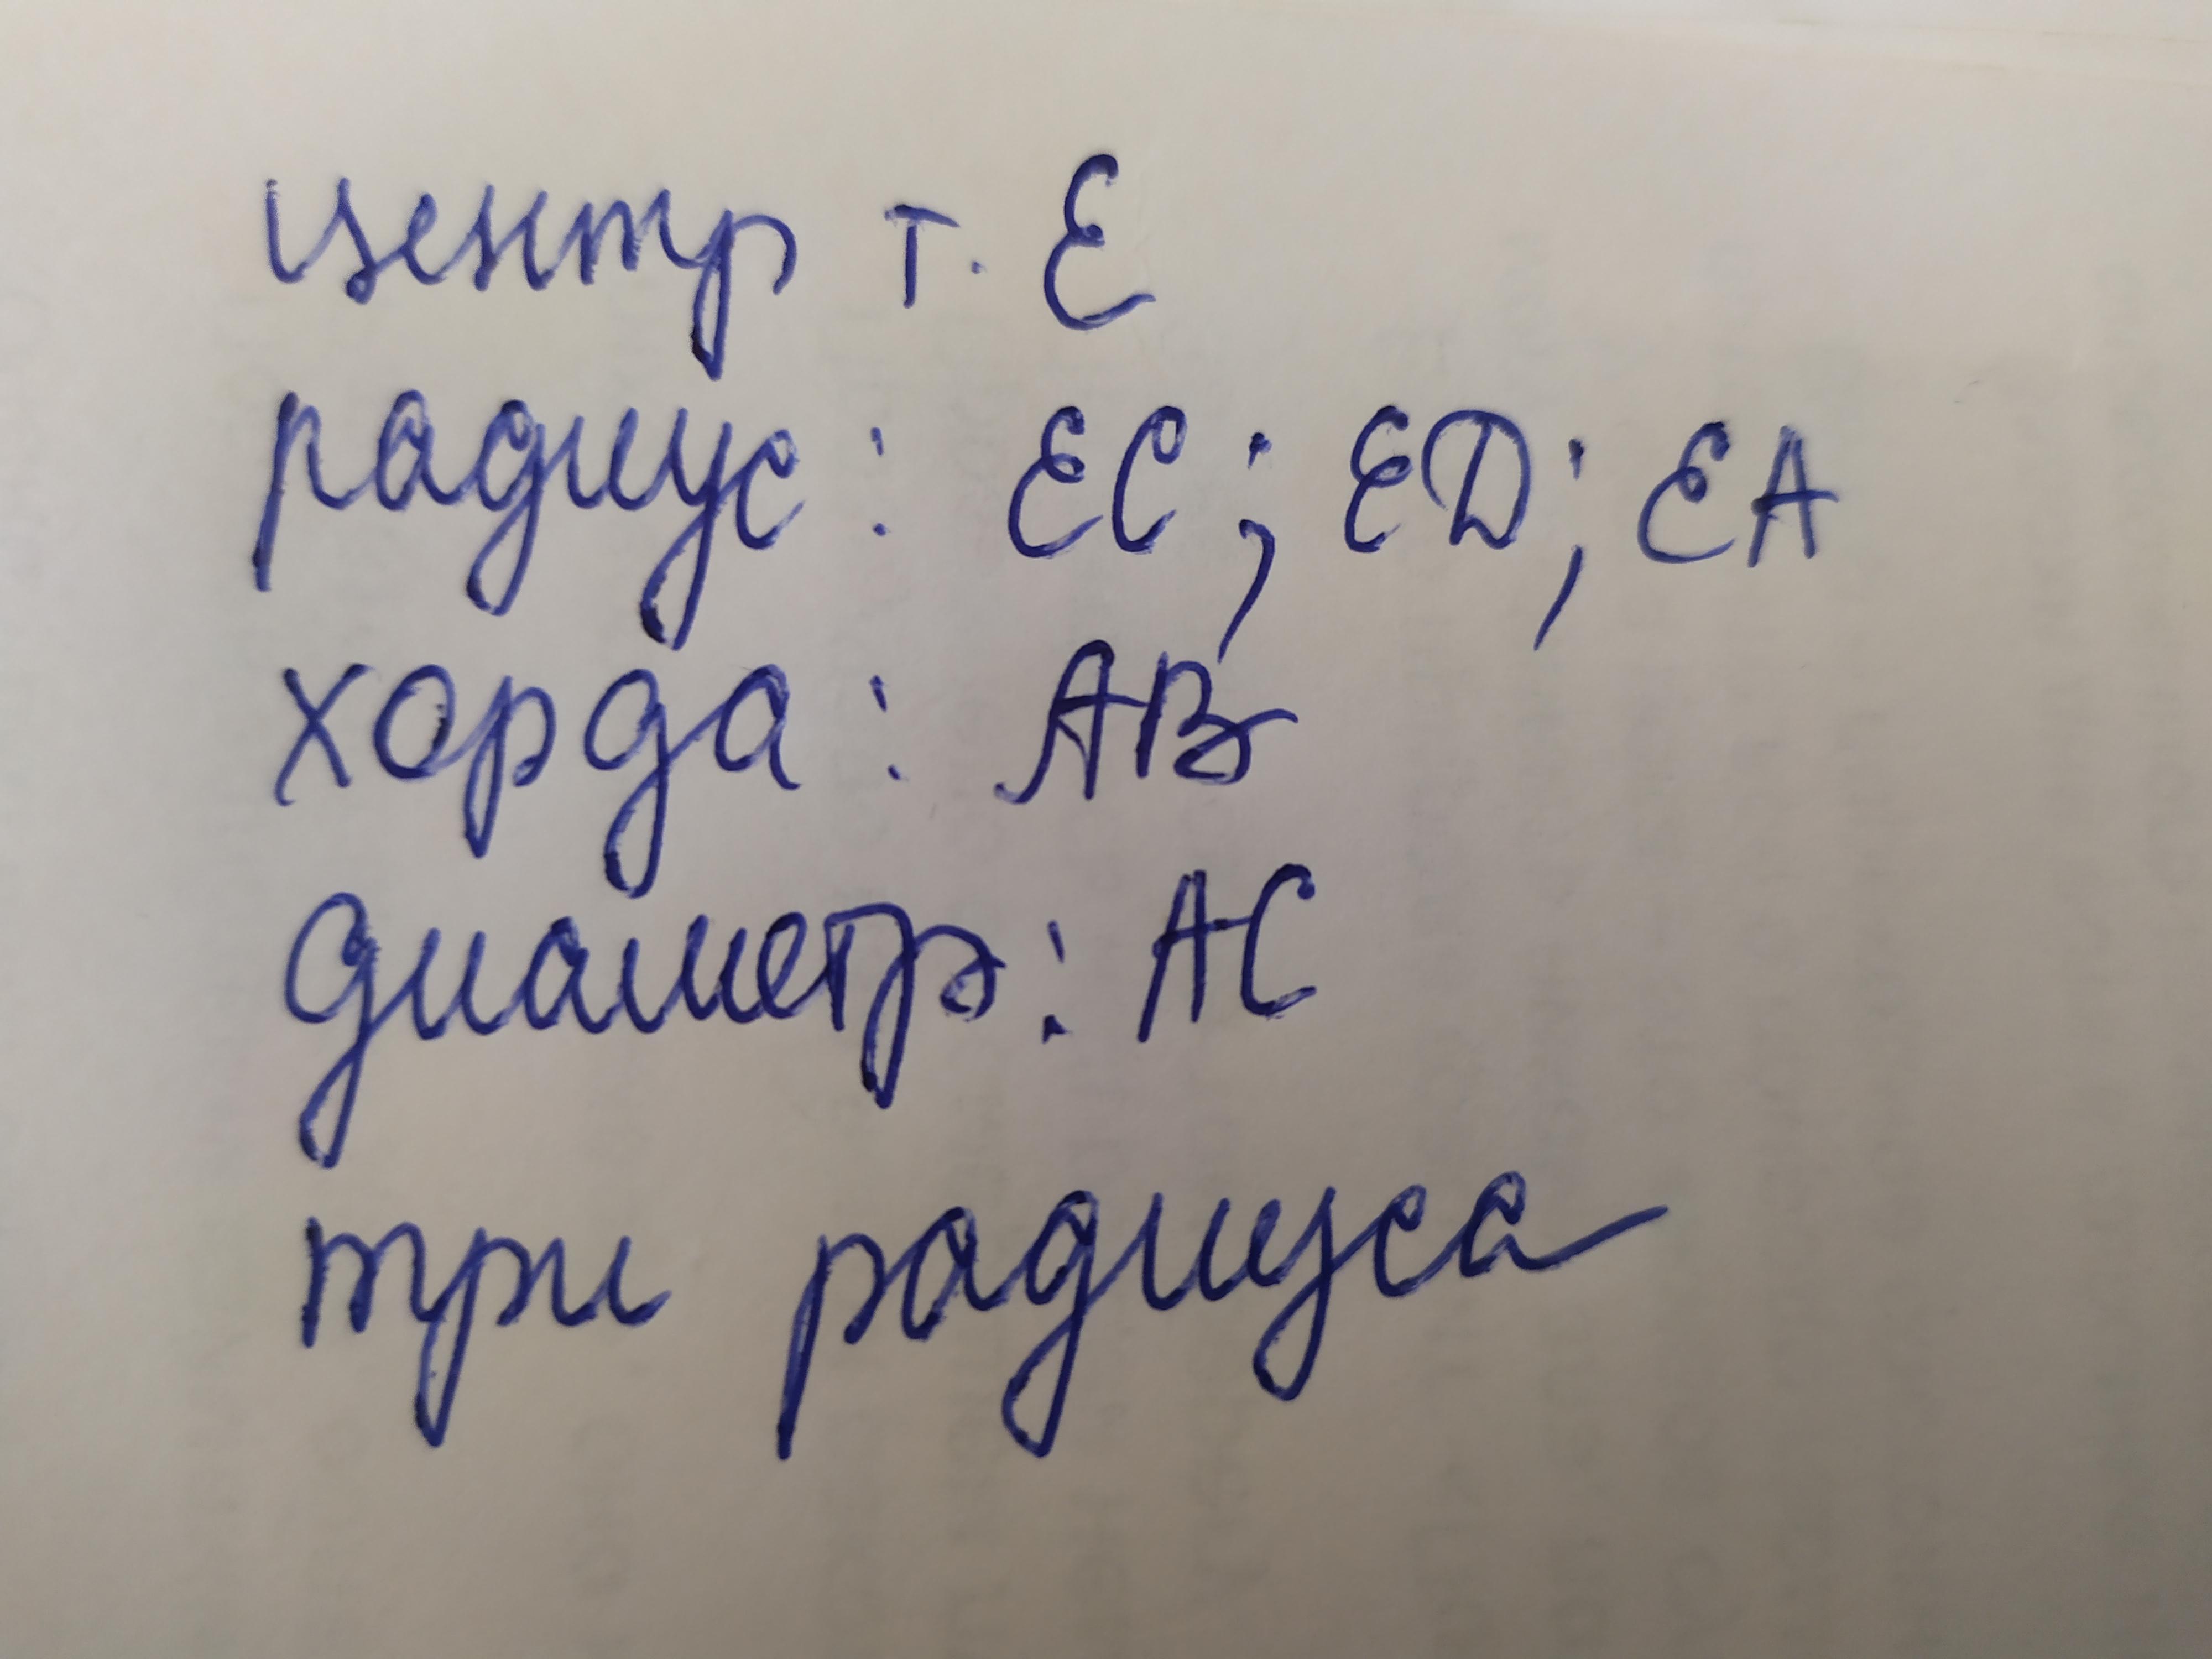 центр т. E
радиус: EC; ED; EA
хорда: AB
диаметр: AC
три радиуса